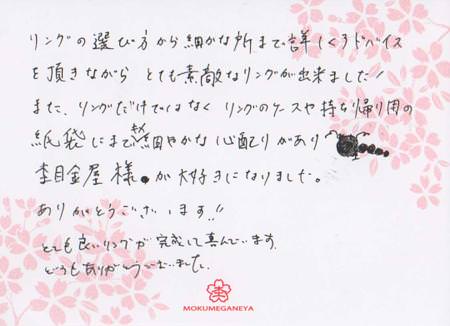 リングの選び方から細かな所まで詳しくアドバイス
を頂きながら とても素敵なリングが出来ました!
また、リングだけではなく リングのケースや持ち帰り用の
紙袋にまできめ細やかな心配りがあり
杢目金屋様が大好きになりました。
ありがとうございます!!
とても良いリングが完成して喜んでいます。
どうもありがとうございました。
MOKUMEGANEYA